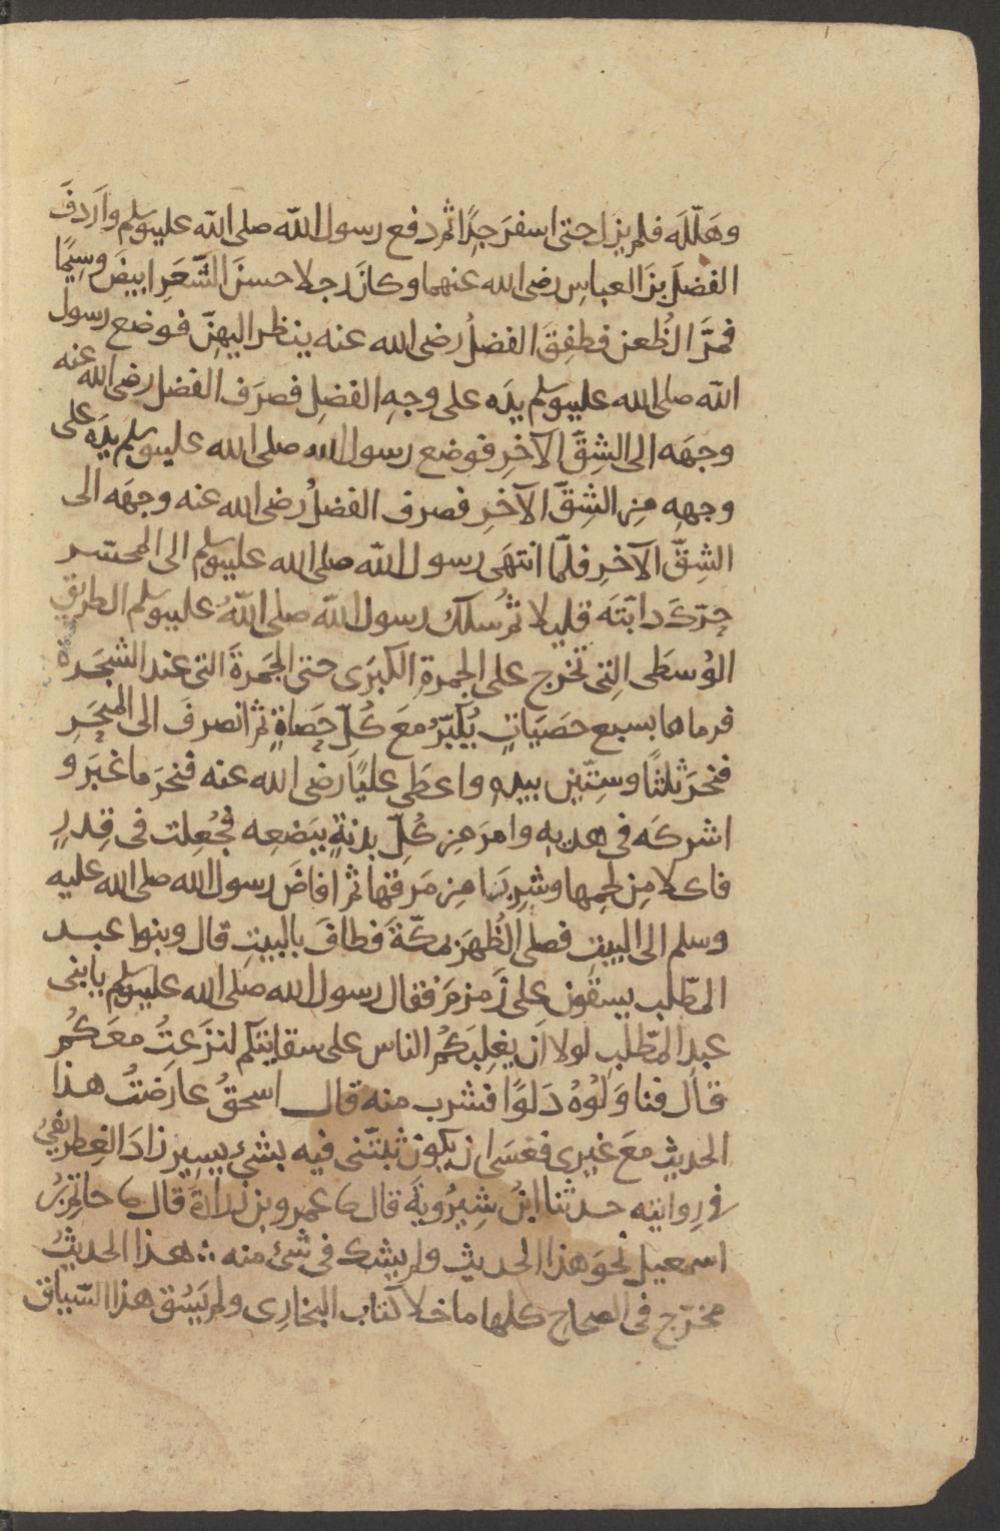 وهَلَّلَه فلم يزل حتى اسفرَ جِدًّا ثم دفع رسول الله صلى الله عليه وسلم واَردفَ
الفضلَ بنَ العباسِ رضى الله عنهما وكانَ رجلا حسنَ الشَّعَرِ ابيضَ وسِيمًا
فمرَّ الظُعن فطفِقَ الفضلُ رضى الله عنه ينظر اليهنّ فوضع رسول
الله صلى الله عليه وسلم يدَه على وجهِ الفضلِ فصرَف الفضل رضى الله عنه
وجهَه الى الشِقِّ الآخرِ فوضع رسول الله صلى الله عليه وسلم يدَه على
وجهِه مِن الشِقِّ الآخرِ فصرف الفضلُ رضى الله عنه وجهَه الى
الشِقِّ الآخرِ فلمّا انتهَى رسول الله صلى الله عليه وسلم الى المحسّر
حرّكَ دابّتَه قليلا ثم سلك رسول الله صلى اللهُ عليه وسلم الطريق
الوُسطَى التِى تخرج على الجمرةِ الكبرَى حتى الجَمرةَ التى عند الشجَرة
فرماها بسبع حصَيَاتٍ يُكبّرُ معَ كُلّ حَصاةٍ ثم انصرفَ الى المنحَرِ
فنحرَ ثلثًا وسِتّين بيدِهِ واعطَى عليًا رضى الله عنه فنحرَ ما غبَرَ و
اشركَه فى هديه وامرَ مِن كُلِّ بدنةٍ ببَضعِه فجُعِلت فى قِدرٍ
فاكلا مِن لحمِها وشرِبَا مِن مَرقتها ثم افاضَ رسول الله صلى الله عليه
وسلم الى البيتِ فصلى الظُهرَ بمكّةَ فطافَ بالبيتِ قال وبنوا عبد
المطّلب يسقون على زَمزمَ فقال رسول الله صلى الله عليه وسلم يا بنى
عبدِ المطّلبِ لولا اَن يغلِبَكُم الناس على سقايتكم لنزَعتُ معَكُم
قال فناوَلُوهُ دَلوًا فشرب منه قال اسحقُ عارضتُ هذا
الحديث معَ غيرى فعَسَى ان يكون ثبّتَنى فيه بشئ يسير زادَ الغِطريفيُ
فى رِوايته حدثنا ابنُ شِيرُويةَ قال ثا عمرو بن زرارةَ قال ثا حاتم بن
اسمعيل نحوَ هذا الحديث ولم يشك فى شئ منه ∴ هذا الحديثُ
مخرّج فى الصحاح كلها ما خلا كتاب البخارِى ولم يَسُق هذا السّياق